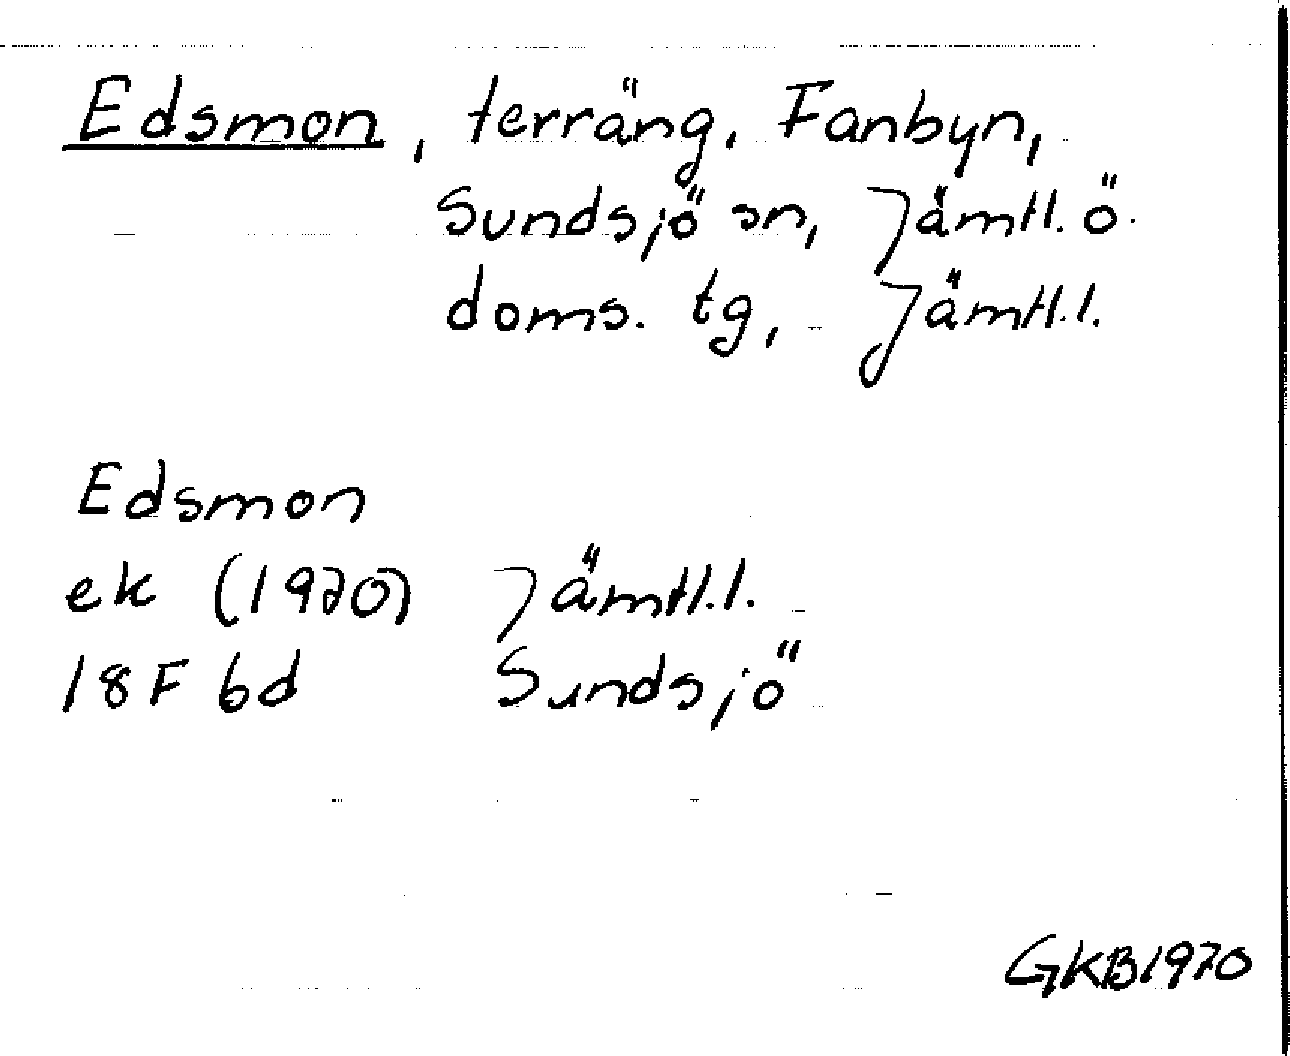 Edsmon, terräng, Fanbyn,
Sundsjö sn, Jämtl. ö.
doms. tg, Jämtl.l.
Edsmon
ek (1970) Jämtl.l.
18F bd Sundsjö
GKB1970